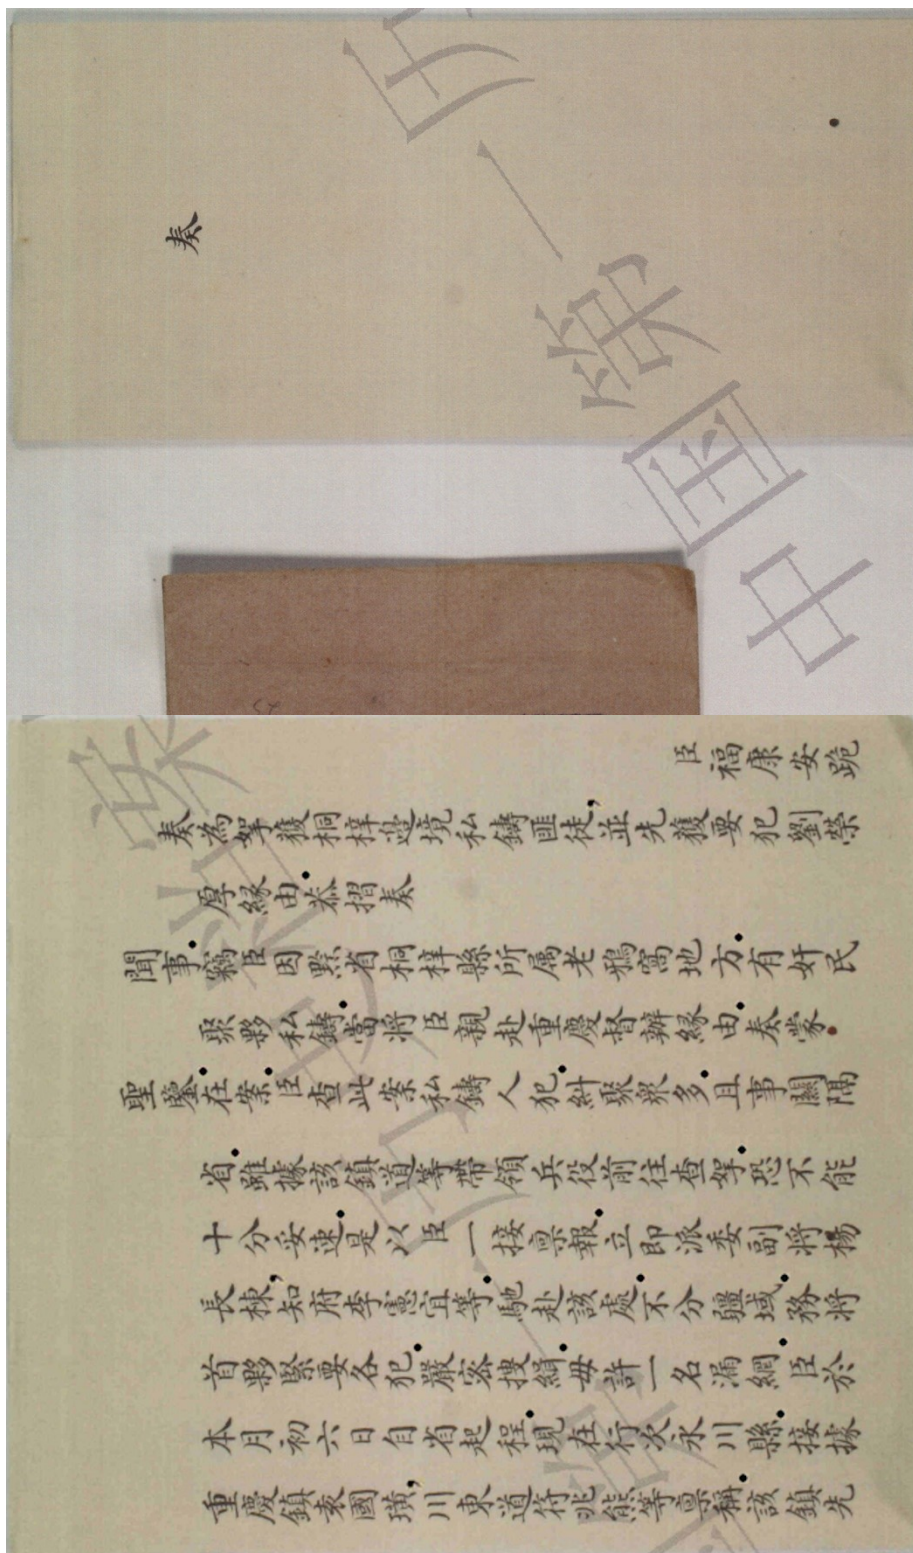 奏
臣福康安跪
奏為拏獲桐梓邊境私鑄匪徒,並先獲要犯劉榮
厚緣由.恭摺奏
聞事.竊臣因黔省桐梓縣所属老鴉窩地方.有奸民
聚夥私鑄.當將臣親赴重慶督辦緣由.奏蒙.
聖鑒.在案.臣查此案私鑄人犯.糾聚衆多.且事關隔
省.雖據該鎮道等帶領兵役前往查拏.恐不能
十分妥速.是以臣一接禀報.立即派委副將楊
長棟,知府李憲宜等.馳赴該處.不分疆域.務將
首夥緊要各犯.嚴密搜緝.毋許一名漏網.臣於
本月初六日自省起程.現在行次永川縣.接據
重慶鎮袁國璜,川東道符兆熊等禀稱.該鎮先
中国第一历
史档案